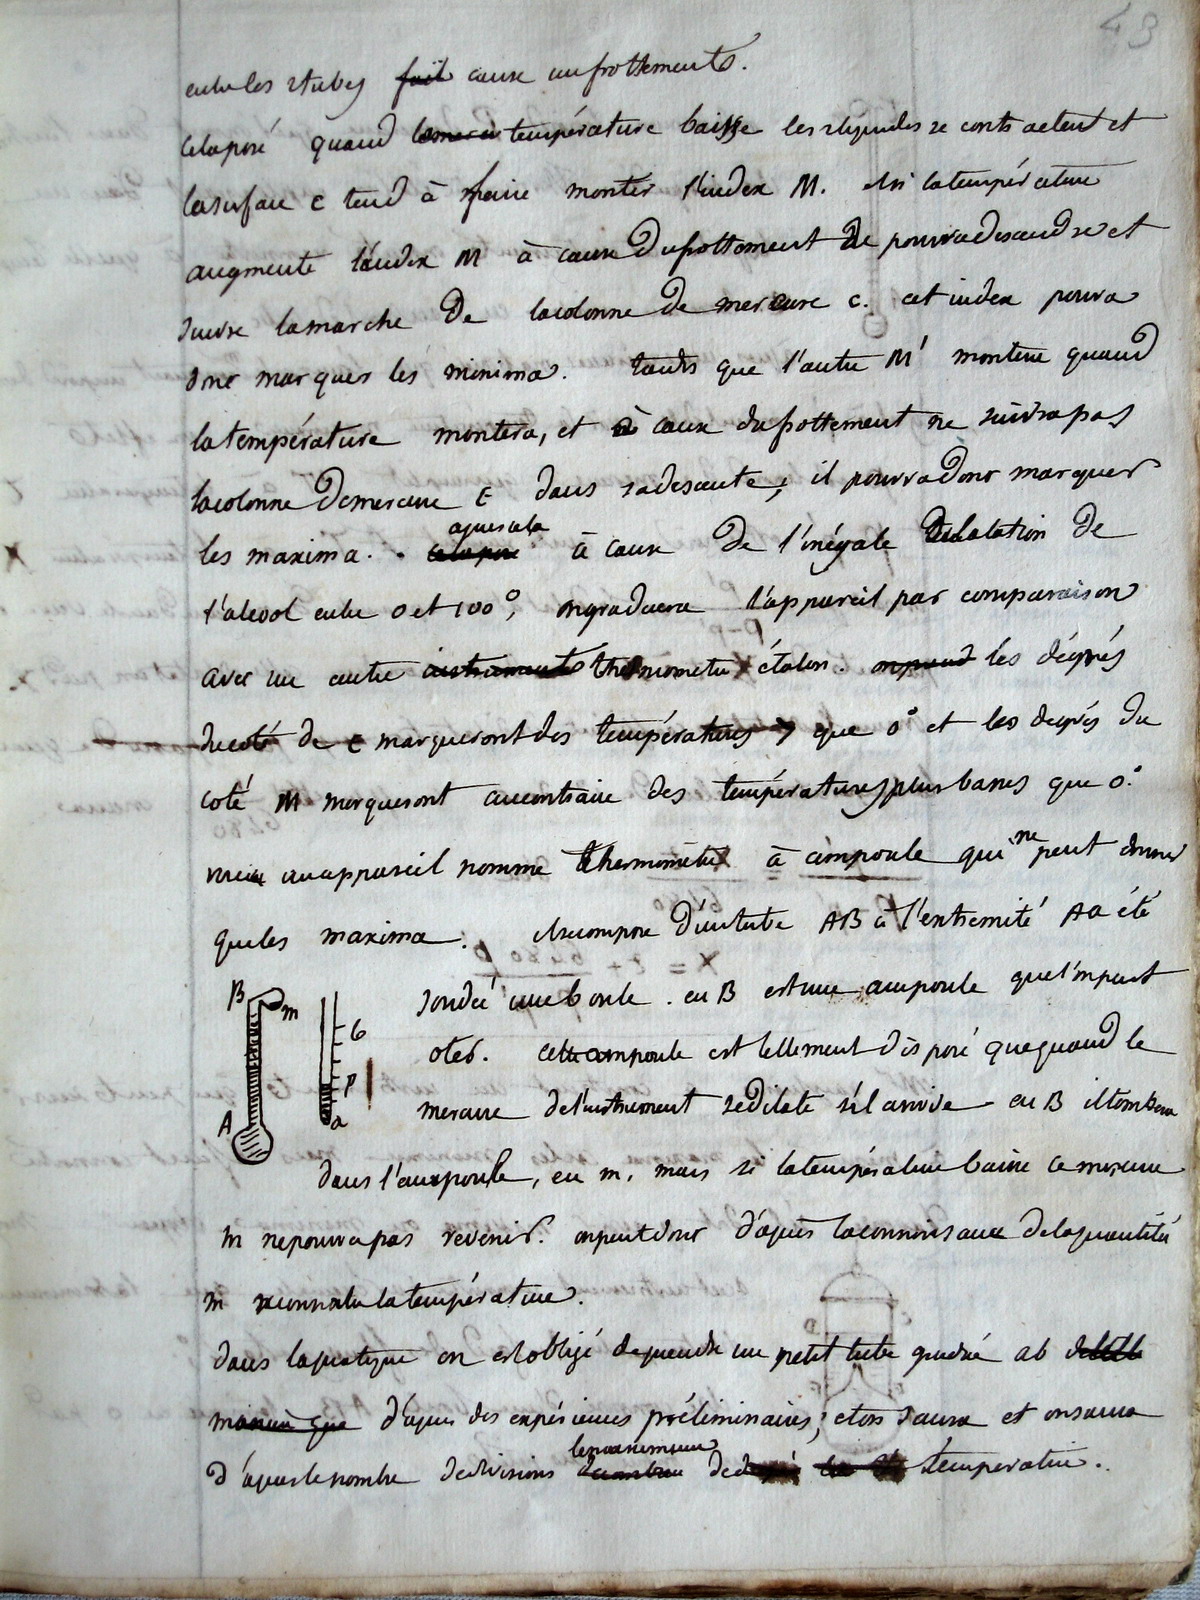 43
entre les 2 tubes fait cause un frottement.
cela posé quand temperature baisse les 2 liquides se contractent et
la surface c tend à faire monter l'index M. et si la température
augmente l'index M à cause du frottement ne pourra descendre et
suivre la marche de la colonne de mercure c. cet index pourra
donc marquer les minima. tandis que l'autre M' montera quand
la température montera, et à cause du frottement ne suivra pas
la colonne de mercure E dans sa descente; il pourra donc marquer
après cela
les maxima. cela posé à cause de l'inégale dilatation de
l'alcool entre 0 et 100°, on graduera l'appareil par comparaison
avec un autre instrument thermometre étalon. on prend les dégrés
du coté de E marqueront des températures > que 0° et les degrés du
coté M marqueront au contraire des températures plus basses que 0°.
un appareil nommé thermomètre à ampoule qui ne peut donner
que les maxima. il se compose d'un tube AB à l'extremité A a été
soudée une boule. en B est une ampoule que l'on peut
oter. cette ampoule est tellement disposé que quand le
mercure de l'instrument se dilate s'il arrive en B il tombera
dans l'ampoule, en m, mais si la température baisse ce mercure
m ne pourra pas revenir. on peut donc d'après la connoissance de la quantité
m reconnaitre la température.
B m A
b p a
dans la pratique on est obligé de prendre un petit tube gradué ab
d'après des expériences préliminaires; et on saura
le maximum
d'après le nombre de divisions de température.